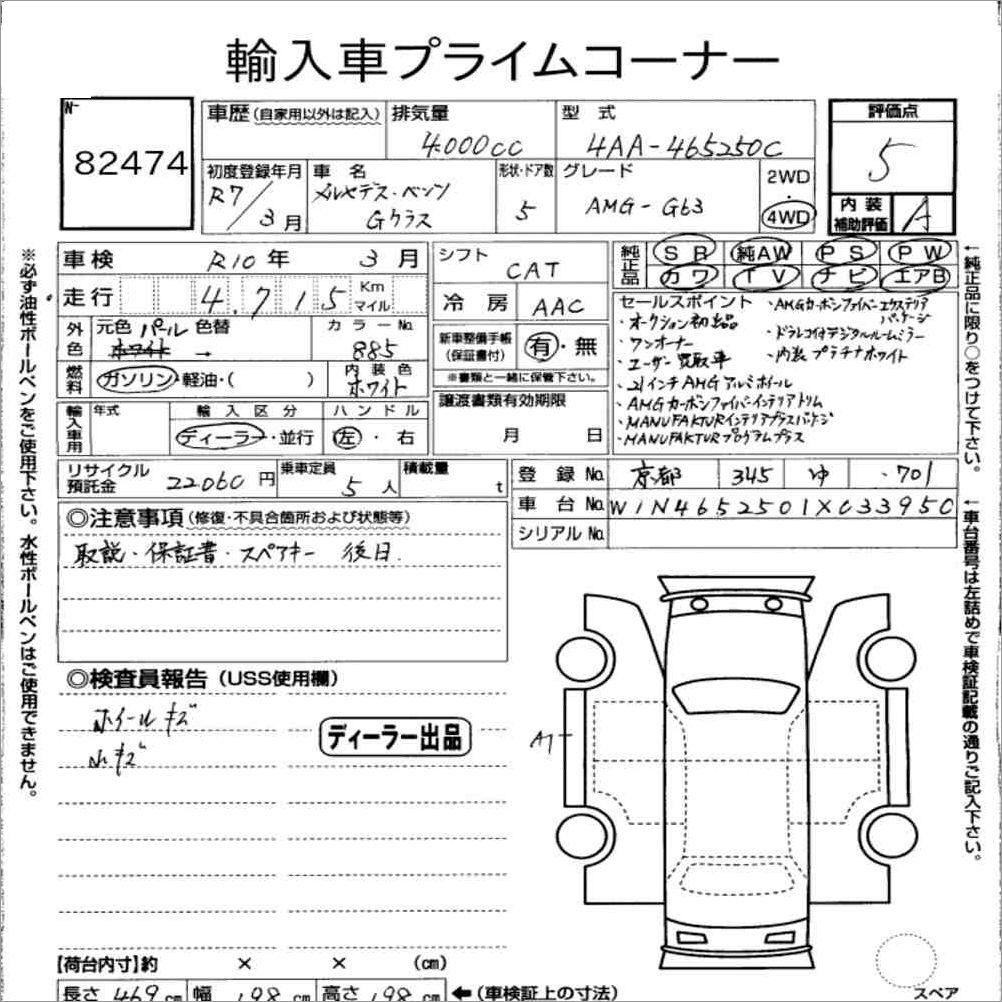 輸入車プライムコーナー
No
82474
車歴(自家用以外は記入)
排気量
4.000cc
型 式
4AA-465250C
評価点
5
初度登録年月
R7/3月
車 名
メルセデス・ベンツ
Gクラス
形状・ドア数
5
グレード
AMG-G63
2WD
・
4WD
内装
補助評価
A
車検 R10年 3月
走行 4,715 Km
マイル
外色
元色 パール 色替
ホワイト →
カラーNo.
885
燃料
ガソリン・軽油・( )
内装色
ホワイト
輸入車用
年式
輸入区分
ディーラー・並行
ハンドル
左・右
シフト
CAT
冷房 AAC
新車整備手帳
(保証書付)
有・無
※書類と一緒に保管下さい。
譲渡書類有効期限
月 日
純正品
SR 純AW PS PW
カワ TV ナビ エアB
セールスポイント
・オークション初出品
・ワンオーナー
・ユーザー買取車
・21インチAMGアルミホイール
・AMGカーボンファイバーインテリアトリム
・MANUFAKTURインテリアプラスパッケージ
・MANUFAKTURプログラムプラス
・AMGカーボンファイバーエクステリア
パッケージ
・ドラレコ付デジタルルームミラー
・内装プラチナホワイト
リサイクル
預託金
22060円
乗車定員
5人
積載量
t
登録No. 京都 345 ゆ ・701
車台No. W1N4652501XC33950
シリアルNo.
◎注意事項(修復・不具合箇所および状態等)
取説・保証書・スペアキー 後日.
◎検査員報告(USS使用欄)
ホイールキズ
小キズ
ディーラー出品
A1
【荷台内寸】約 × × (cm)
長さ 469cm 幅 198cm 高さ 198cm ←(車検証上の寸法)
スペア
※必ず油性ボールペンをご使用下さい。水性ボールペンはご使用できません。
←純正品に限り○をつけて下さい。
←車台番号は左詰めで車検証記載の通りご記入下さい。